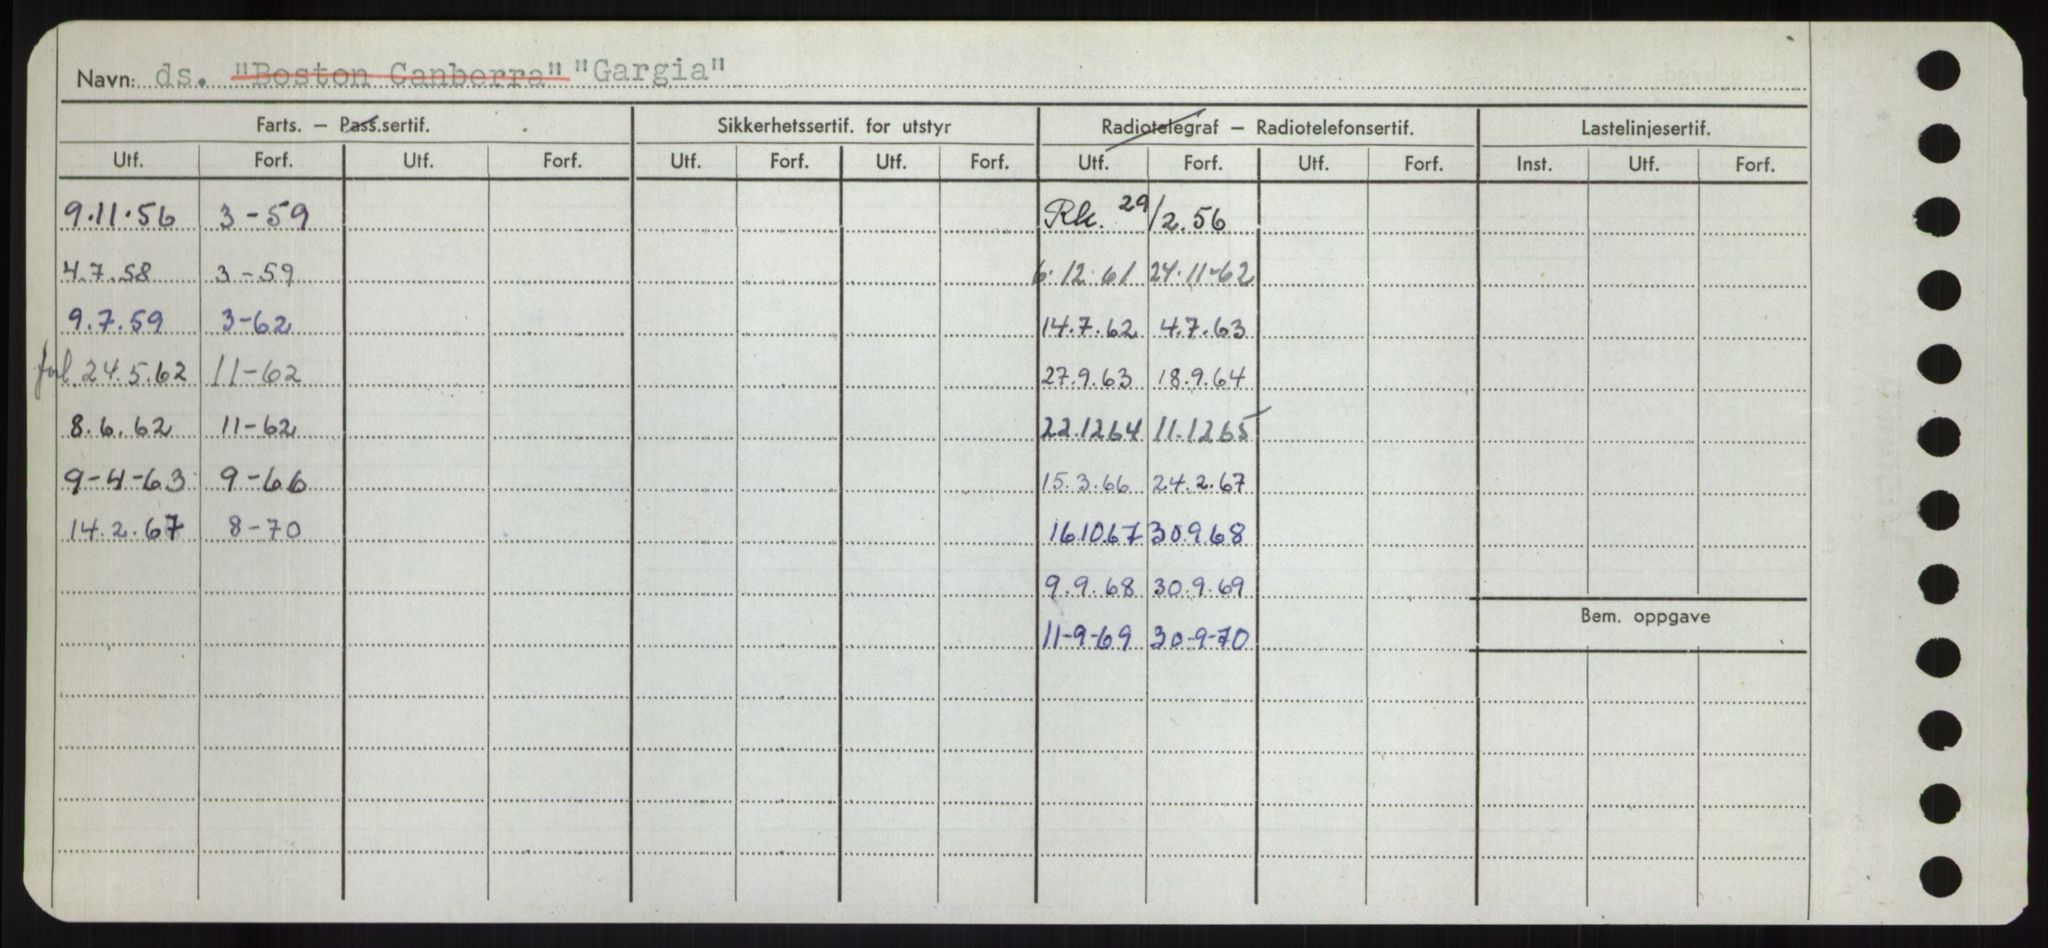 Navn: ds. "Boston Canberra" "Gargia"
Farts. – Pass.sertif. Sikkerhetssertif. for utstyr Radiotelegraf – Radiotelefonsertif. Lastelinjesertif.
Utf. Forf. Utf. Forf. Utf. Forf. Utf. Forf. Utf. Forf. Utf. Forf. Inst. Utf. Forf.
9.11.56 3-59 Rk. 29/2.56
4.7.58 3-59 6.12.61 24.11-62
9.7.59 3-62 14.7.62 4.7.63
forl 24.5.62 11-62 27.9.63 18.9.64
8.6.62 11-62 22.1264 11.1265
9-4-63 9-66 15.3.66 24.2.67
14.2.67 8-70 16.1067 30.9.68
9.9.68 30.9.69
Bem. oppgave
11-9-69 30-9-70